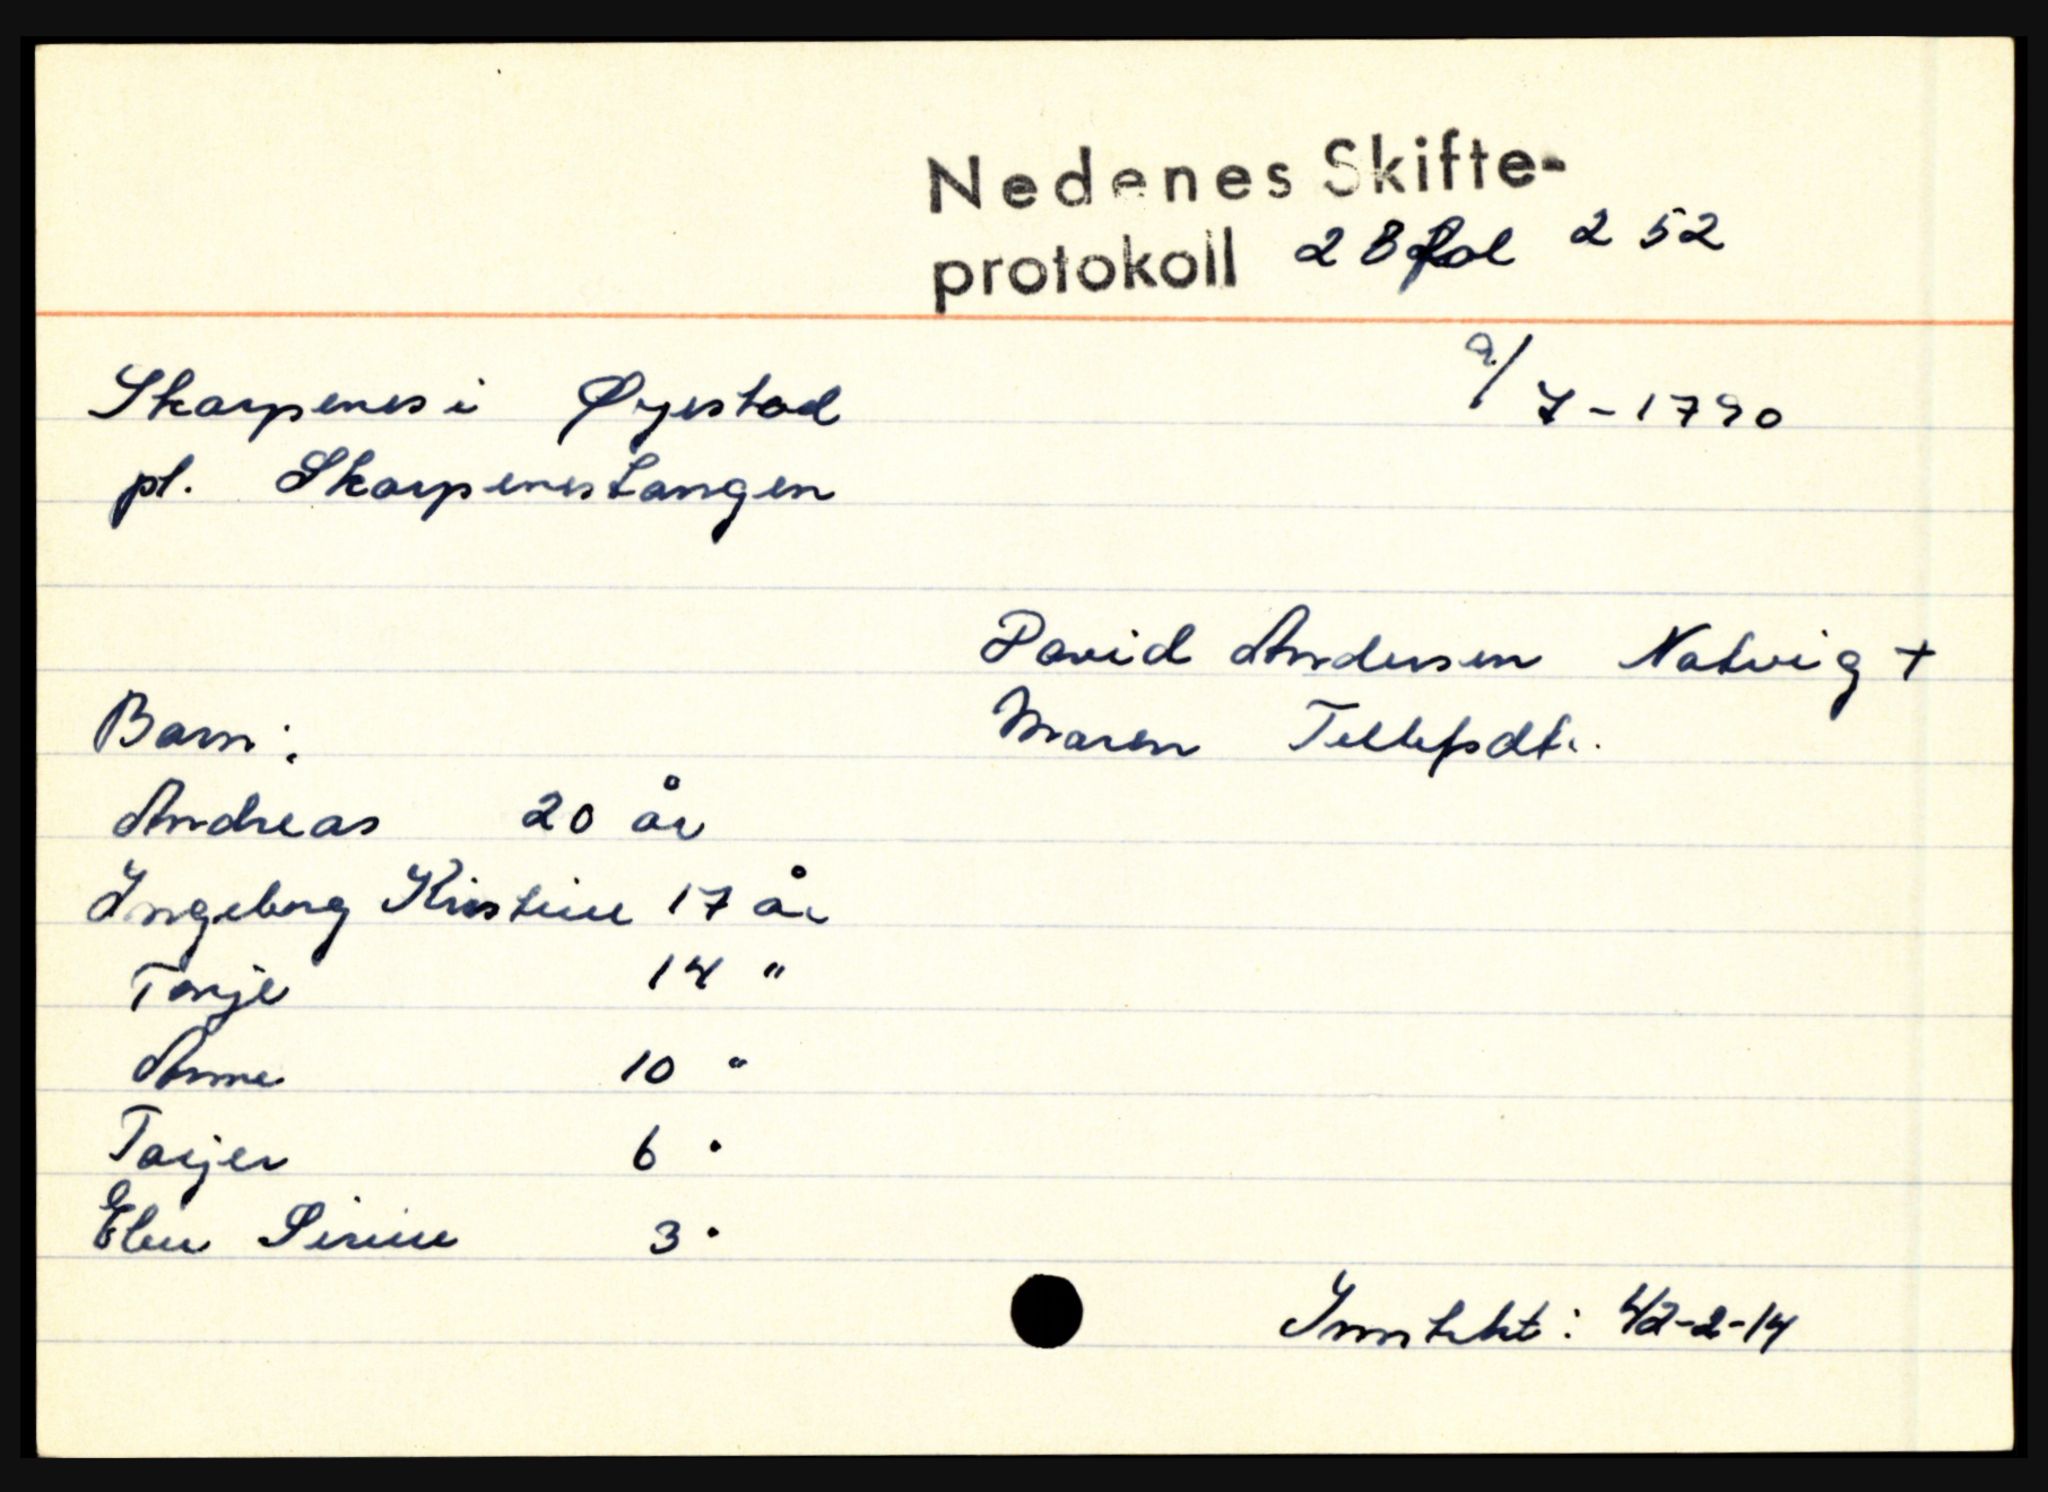 Nedenes Skifte-
protokoll 28 fol 252
9/7-1790
Skarpenes i Øyestad
pl. Skarpenestangen
David Andersen Natvig +
Maren Tellefsdt.
Barn:
Andreas 20 år
Ingeborg Kristine 17 år
Tarje 14 "
Anne 10 "
Tarjer 6 "
Elen Sirine 3 "
Inntekt: 42-2-14